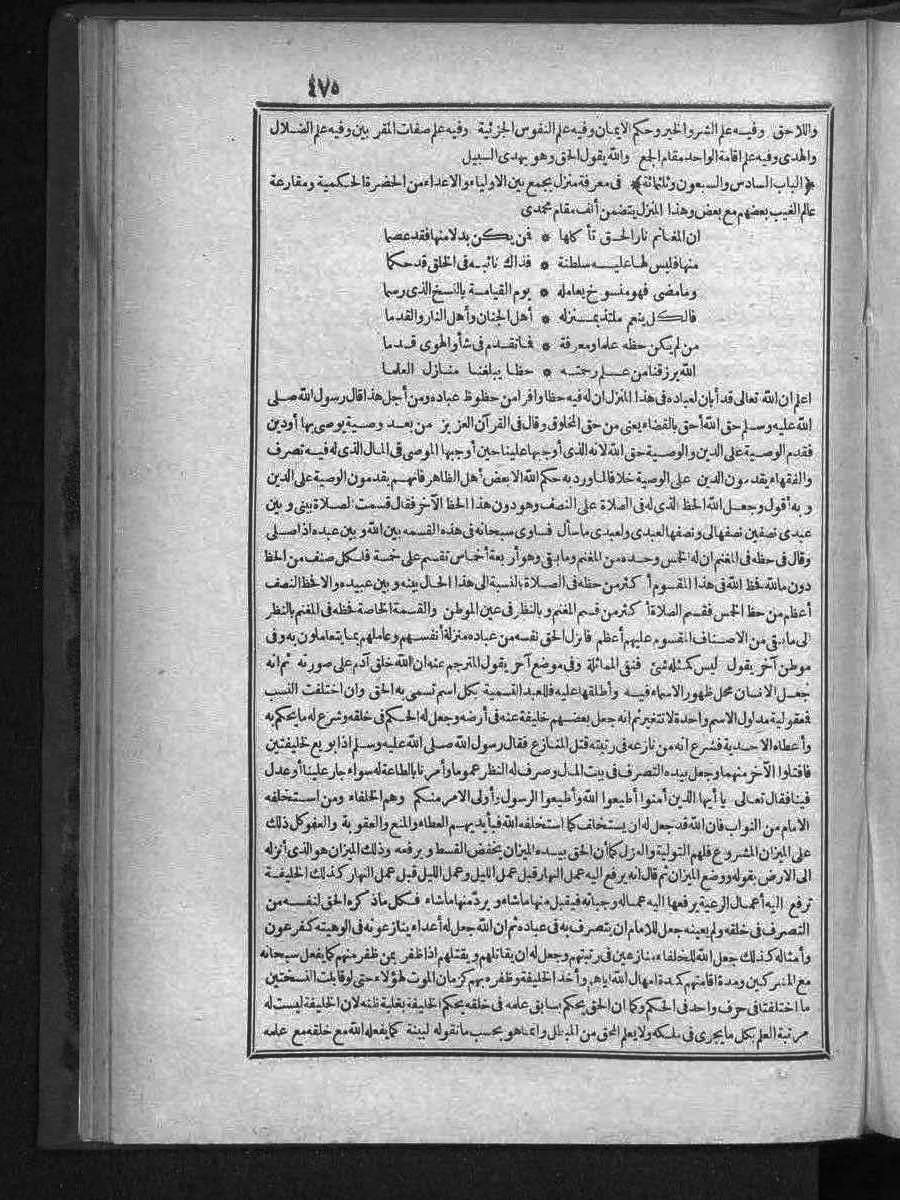 ٤٧٥
واللاحق وفيه علم الشر والخير وحكم الايمان وفيه علم النفوس الجزئية وفيه علم صفات المقربين وفيه علم الضلال
والهدى وفيه علم اقامة الواحد مقام الجمع والله يقول الحق وهو يهدى السبيل
﴿الباب السادس والسبعون وثلثمائة﴾ فى معرفة منزل يجمع بين الاولياء والاعداء من الحضرة الحكمية ومقارعة
عالم الغيب بعضهم مع بعض وهذا المنزل يتضمن ألف مقام محمدى
ان المغانم نار الحق تأكلها * فمن يكن بدلا منها فقد عصما
منها فليس لها عليه سلطنة * فذاك نائبه فى الخلق قد حكما
وما مضى فهو منسوخ يعامله * يوم القيامة بالنسخ الذى رسما
فالكل ينعم ملتذ بمنزله * أهل الجنان وأهل النار والقدما
من لم يكن حظه علما ومعرفة * فما تقدم فى شأو الهوى قدما
الله يرزقنا من علم رحمته * حظا يبلغنا منازل العلما
اعلم ان الله تعالى قد أبان لعباده فى هذا المنزل ان له فيه حظا وافرا من حظوظ عباده ومن أجل هذا قال رسول الله صلى
الله عليه وسلم حق الله أحق بالقضاء يعنى من حق المخلوق وقال فى القرآن العزيز من بعد وصية يوصى بها أو دين
فقدم الوصية على الدين والوصية حق الله لانه الذى أوجبها علينا حين أوجبها الموصى فى المال الذى له فيه تصرف
والفقهاء يقدمون الدين على الوصية خلافا لما ورد به حكم الله الا بعض أهل الظاهر فانهم يقدمون الوصية على الدين
وبه أقول وجعل الله الحظ الذى له فى الصلاة على النصف وهو دون هذا الحظ الآخر فقال قسمت الصلاة بينى وبين
عبدى نصفين نصفها لى ونصفها لعبدى ولعبدى ما سأل فساوى سبحانه فى هذه القسمه بين الله وبين عبده اذا صلى
وقال فى حظه فى المغنم ان له الخمس وحده من المغنم وما بقى وهو أربعة أخماس تقسم على خمسة فلكل صنف من الحظ
دون مالله فحظ الله فى هذا المقسوم أكثر من حظه فى الصلاة بالنسبة الى هذا الحال بينه وبين عبيده والا فحظ النصف
أعظم من حظ الخمس فقسم الصلاة أكثر من قسم المغنم وبالنظر فى عين الموطن والقسمة الخاصة فحظه فى المغنم بالنظر
الى ما بقى من الاصناف المقسوم عليهم أعظم فانزل الحق نفسه من عباده منزلة أنفسهم وعاملهم بما يتعاملون به وفى
موطن آخر يقول ليس كمثله شئ فنفى المماثلة وفى موضع آخر يقول المترجم عنه ان الله خلق آدم على صورته ثم انه
جعل الانسان محل ظهور الاسماء فيه وأطلقها عليه فللعبد التسمية بكل اسم تسمى به الحق وان اختلفت النسب
فمعقولية مدلول الاسم واحدة لا تتغير ثم انه جعل بعضهم خليفة عنه فى أرضه وجعل له الحكم فى خلقه وشرع له ما يحكم به
وأعطاه الاحدية فشرع انه من نازعه فى رتبته قتل المنازع فقال رسول الله صلى الله عليه وسلم اذا بويع لخليفتين
فاقتلوا الآخر منهما وجعل بيده التصرف فى بيت المال وصرف له النظر عموما وأمرنا بالطاعة له سواء جار علينا أو عدل
فينا فقال تعالى يا أيها الذين آمنوا أطيعوا الله وأطيعوا الرسول وأولى الامر منكم وهم الخلفاء ومن استخلفه
الامام من النواب فان الله قد جعل له ان يستخلف كما استخلفه الله فبأيديهم العطاء والمنع والعقوبة والعفو كل ذلك
على الميزان المشروع فلهم التولية والعزل كما أن الحق بيده الميزان يخفض القسط ويرفعه وذلك الميزان هو الذى أنزله
الى الارض بقوله ووضع الميزان ثم قال انه يرفع اليه عمل النهار قبل عمل الليل وعمل الليل قبل عمل النهار كذلك الخليفة
ترفع اليه أعمال الرعية يرفعها اليه عماله وجباته فيقبل منها ما شاء ويردّ منها ما شاء فكل ما ذكره الحق لنفسه من
التصرف فى خلقه ولم يعينه جعل للامام ان يتصرف به فى عباده ثم ان الله جعل له أعداء ينازعونه فى الوهيته كفرعون
وأمثاله كذلك جعل الله للخلفاء منازعين فى رتبتهم وجعل له ان يقاتلهم ويقتلهم اذا ظفر بمن ظفر منهم كما يفعل سبحانه
مع المشركين ومدة اقامتهم كمدة امهال الله اياهم وأخذ الخليفة وظفره بهم كزمان الموت لهؤلاء حتى لو قابلت النسختين
ما اختلفتا فى حرف واحد فى الحكم وكما ان الحق يحكم بسابق علمه فى خلقه يحكم الخليفة بغلبة ظنه لان الخليفة ليست له
مرتبة العلم بكل ما يجرى فى ملكه ولا يعلم المحق من المبطل وانما هو بحسب ما تقوله لبينة كما يفعله الله مع خلقه مع علمه